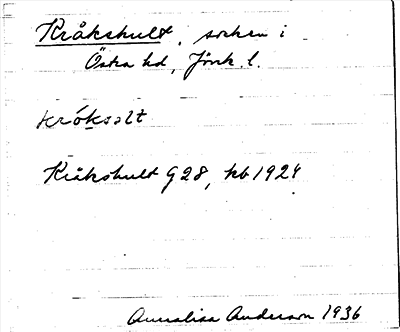 Kråkshult, socken i
Östra hd, Jönk. l.
króksolt
Kråkshult G28, kb 1924
Annalisa Anderson 1936